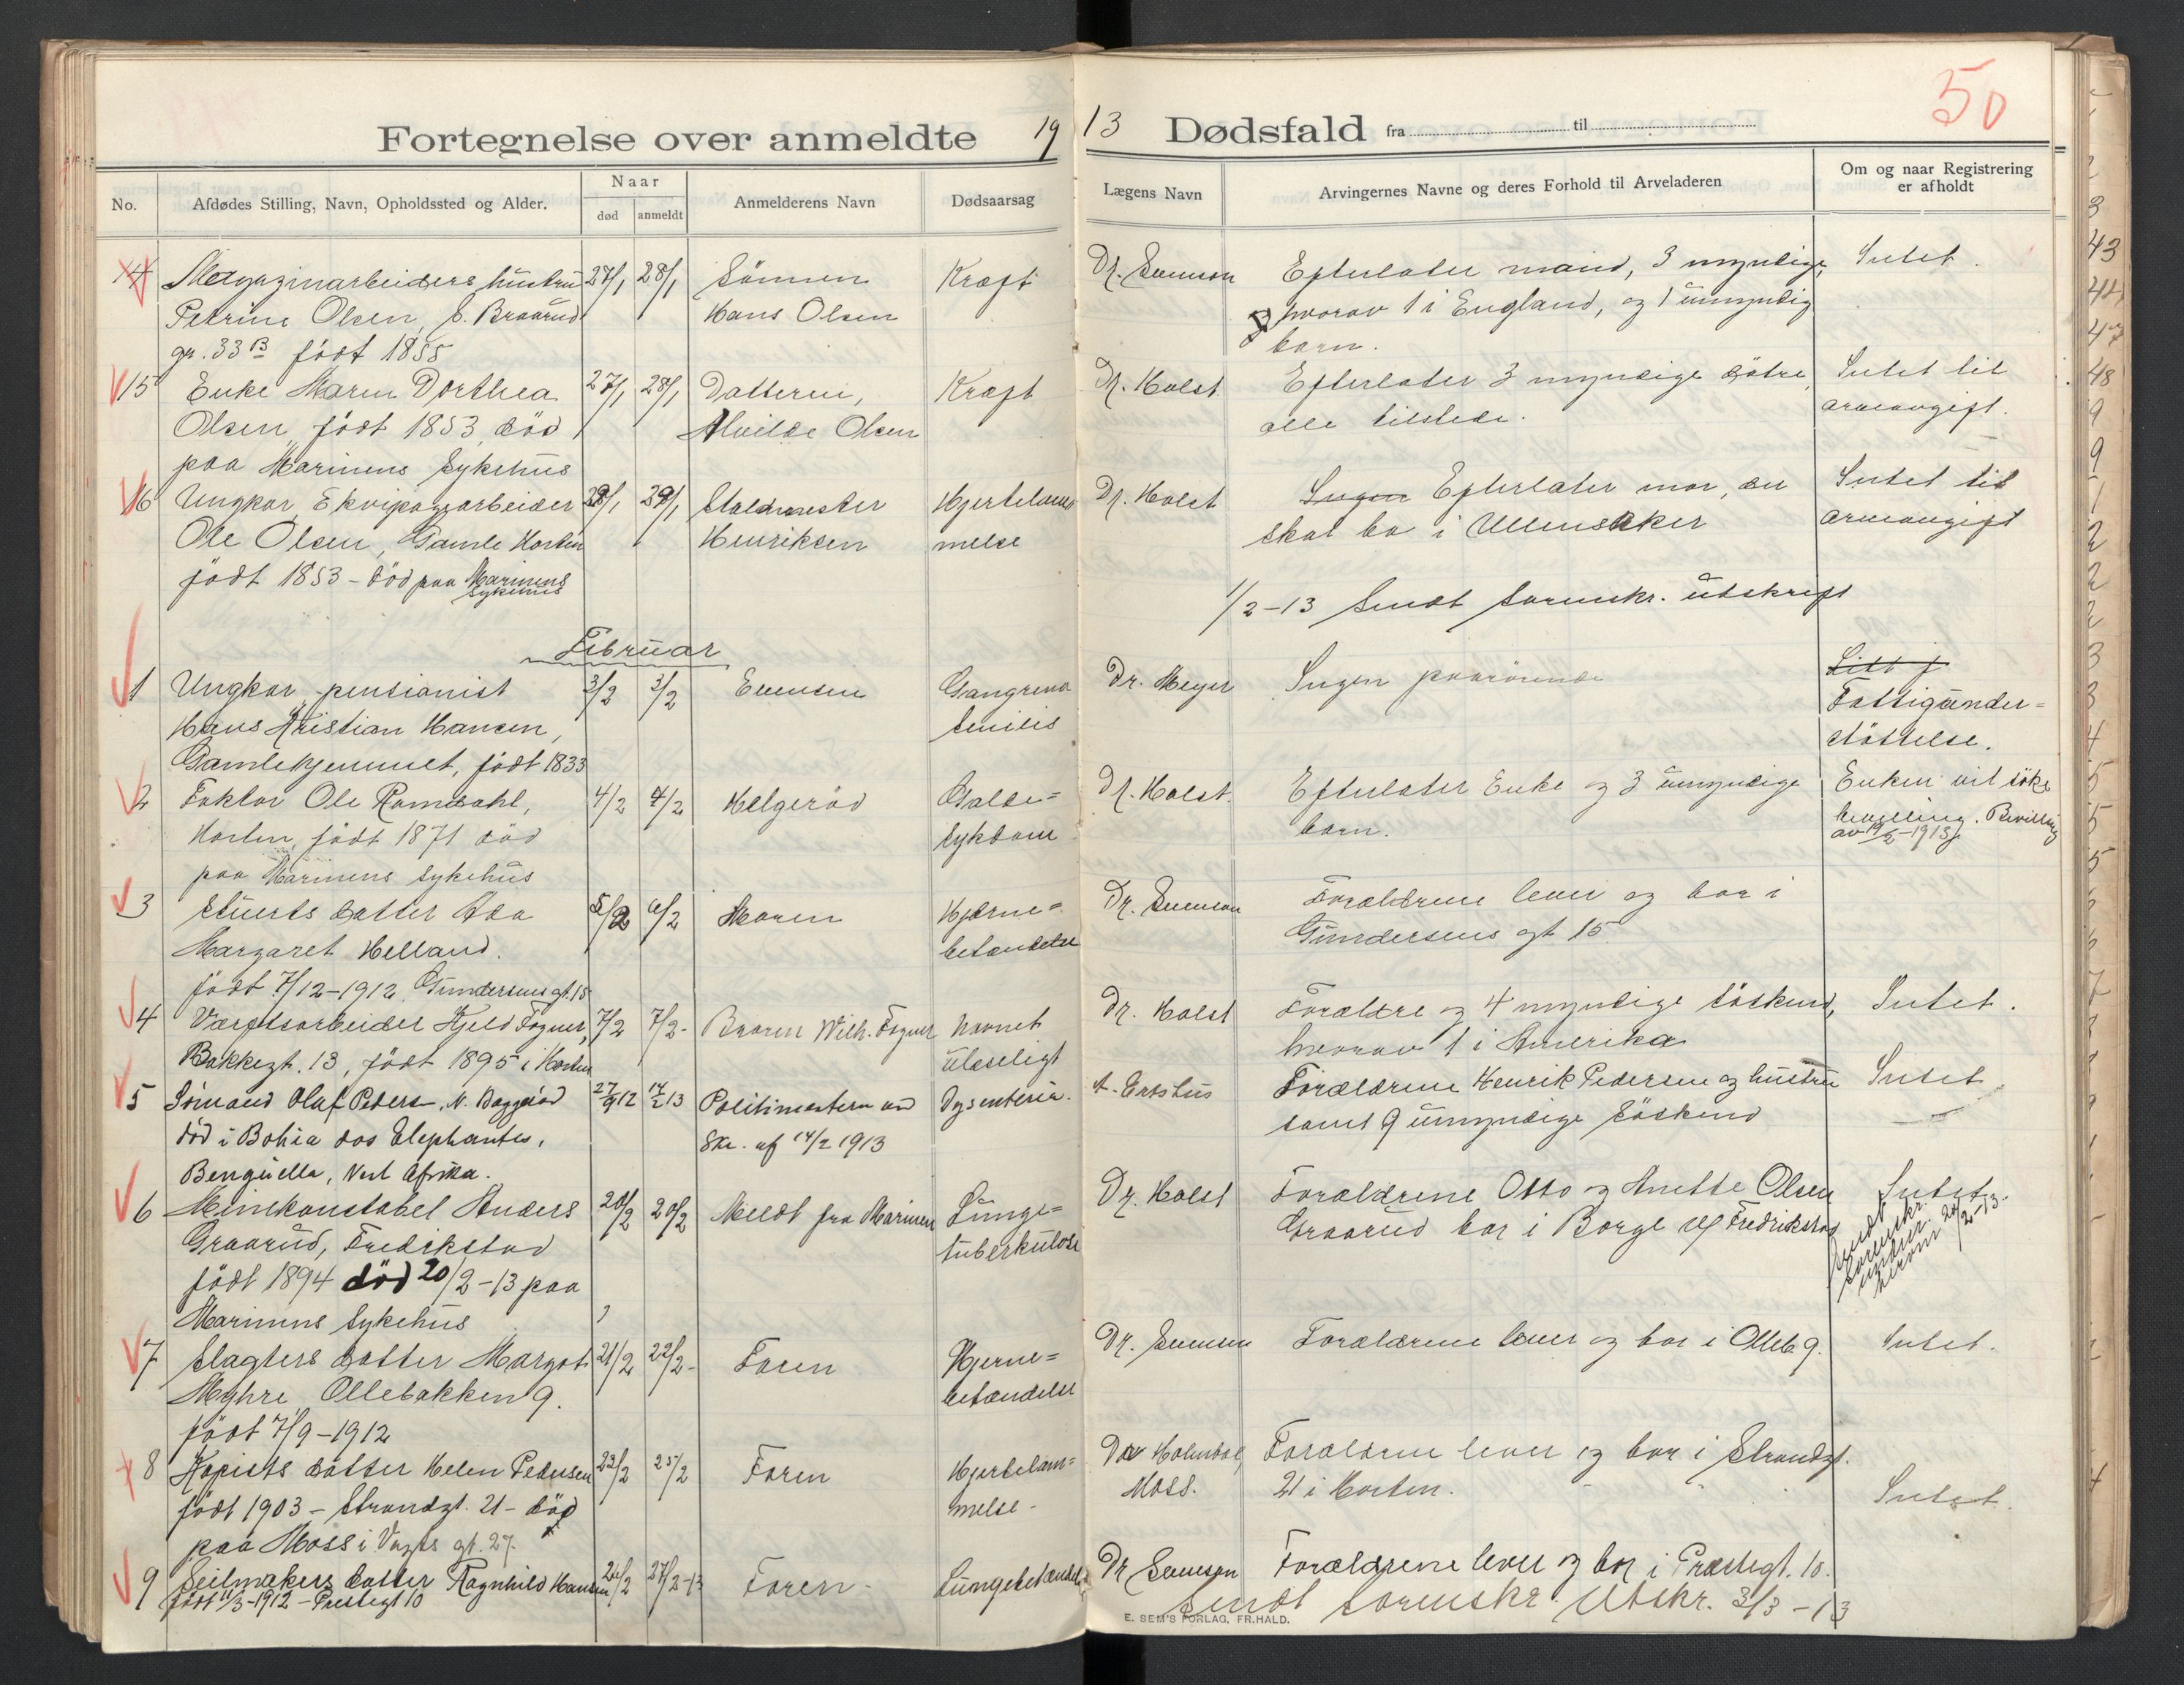 50
Fortegnelse over anmeldte 19
13 Dødsfald fra til
No.
Afdødes Stilling, Navn, Opholdssted og Alder.
Naar
død
anmeldt
Anmelderens Navn
Dødsaarsag
Lægens Navn
Arvingernes Navne og deres Forhold til Arveladeren
Om og naar Registrering
er afholdt
14 Magazinarbeiders hustru 27/1 28/1 Sønnen Kræft
Petrine Olsen, S. Braarud Hans Olsen
gr. 33 B født 1855
Dr. Evensen Efterlater mand, 3 myndige, Intet.
hvorav 1 i England, og 1 umyndig
barn.
15 Enke Maren Dorthea 27/1 28/1 Datteren, Kræft
Olsen, født 1853 død Alvilde Olsen
paa Marinens Sykehus
Dr. Holst Efterlater 3 myndige døtre, Intet til
alle tilstede. arveavgift.
16 Ungkar Ekvipagearbeider 28/1 29/1 Staldmester Hjertelam
Ole Olsen, Gamle Horten Henriksen melse
født 1853 - død paa Marinens
Sykehus
Dr. Holst Ingen Efterlater mor, der Intet til
skal bo i Ullensaker arveavgift
1/2-13 Sendt Sorenskr. utskrift
Februar
1 Ungkar, pensionist 3/2 3/2 Evensen Gangrena
Hans Kristian Hansen, senilis
Gamlehjemmet, født 1833
Dr. Meyer Ingen paarørende
Fattigunder=
støttelse.
2 Faktor Ole Ramdahl, 4/2 4/2 Helgerød Galde=
Horten, født 1871 død sykdom
paa Marinens sykehus
Dr. Holst. Efterlater Enke og 3 umyndige Enken vil søke
barn. bevilling. Bevilling
av 19/2-1913
3 Stuerts datter Ada 5/2 6/2 Moren Hjerne=
Margaret Helland. betændelse
født 7/12-1912 Gundersens gt. 15
Dr. Evensen Forældrene lever og bor i
Gundersens gt 15
4 Værftsarbeider Kjeld Fogner, 7/2 7/2- Broren Wilh. Fogner Navnet
Bakkegt. 13, født 1895 i Horten ulæseligt
Dr. Holst Forældre og 4 myndige søskend, Intet.
hvorav 1 i Amerika
5 Sømand Olaf Peders—, N. Baggerød 27/9 12 14/2 13 Politimesteren ved Dysenteria.
død i Bohia dos Elephantes, Skr. af 14/2 1913
Benguella, Vest Afrika.
Forældrene Henrik Pedersen og hustru Intet.
samt 9 umyndige søskend
6 Minekonstabel Anders 20/2 20/2 Meldt fra Marinen Lunge=
Graarud, Fredrikstad tuberkulose
født 1894 død 20/2-13 paa
Marinens Sykehus
Dr. Holst Forældrene Otto og Anette Olsen Intet
Graarud bor i Borge v/ Fredrikstad
Sendt
sorenskr.
20/2-13.
7 Slagters datter Margot 21/2 22/2- Faren Hjerne=
Myhre Ollebakken 9. betændelse
født 7/9-1912
Dr. Evensen Forældrene lever og bor i Olleb. 9. Intet.
8 Kopists datter Helen Pedersen 23/2 25/2 Faren Hjertelam=
født 1903 - Strandgt. 21- død melse-
paa Moss i Vogts gt. 27.
Moss. Forældrene lever og bor i Strandgt.
21 i Horten. Intet.
9 Seilmakers datter Ragnhild Hansen 26/2 27/2-13 Faren- Lungebetændelse
født 11/3-1912 - Prestegt 10
Dr Evensen Forældrene lever og bor i Præstegt. 10.
Sendt sorenskr. Utskr. 3/3-13
E. SEM'S FORLAG, FR.HALD.